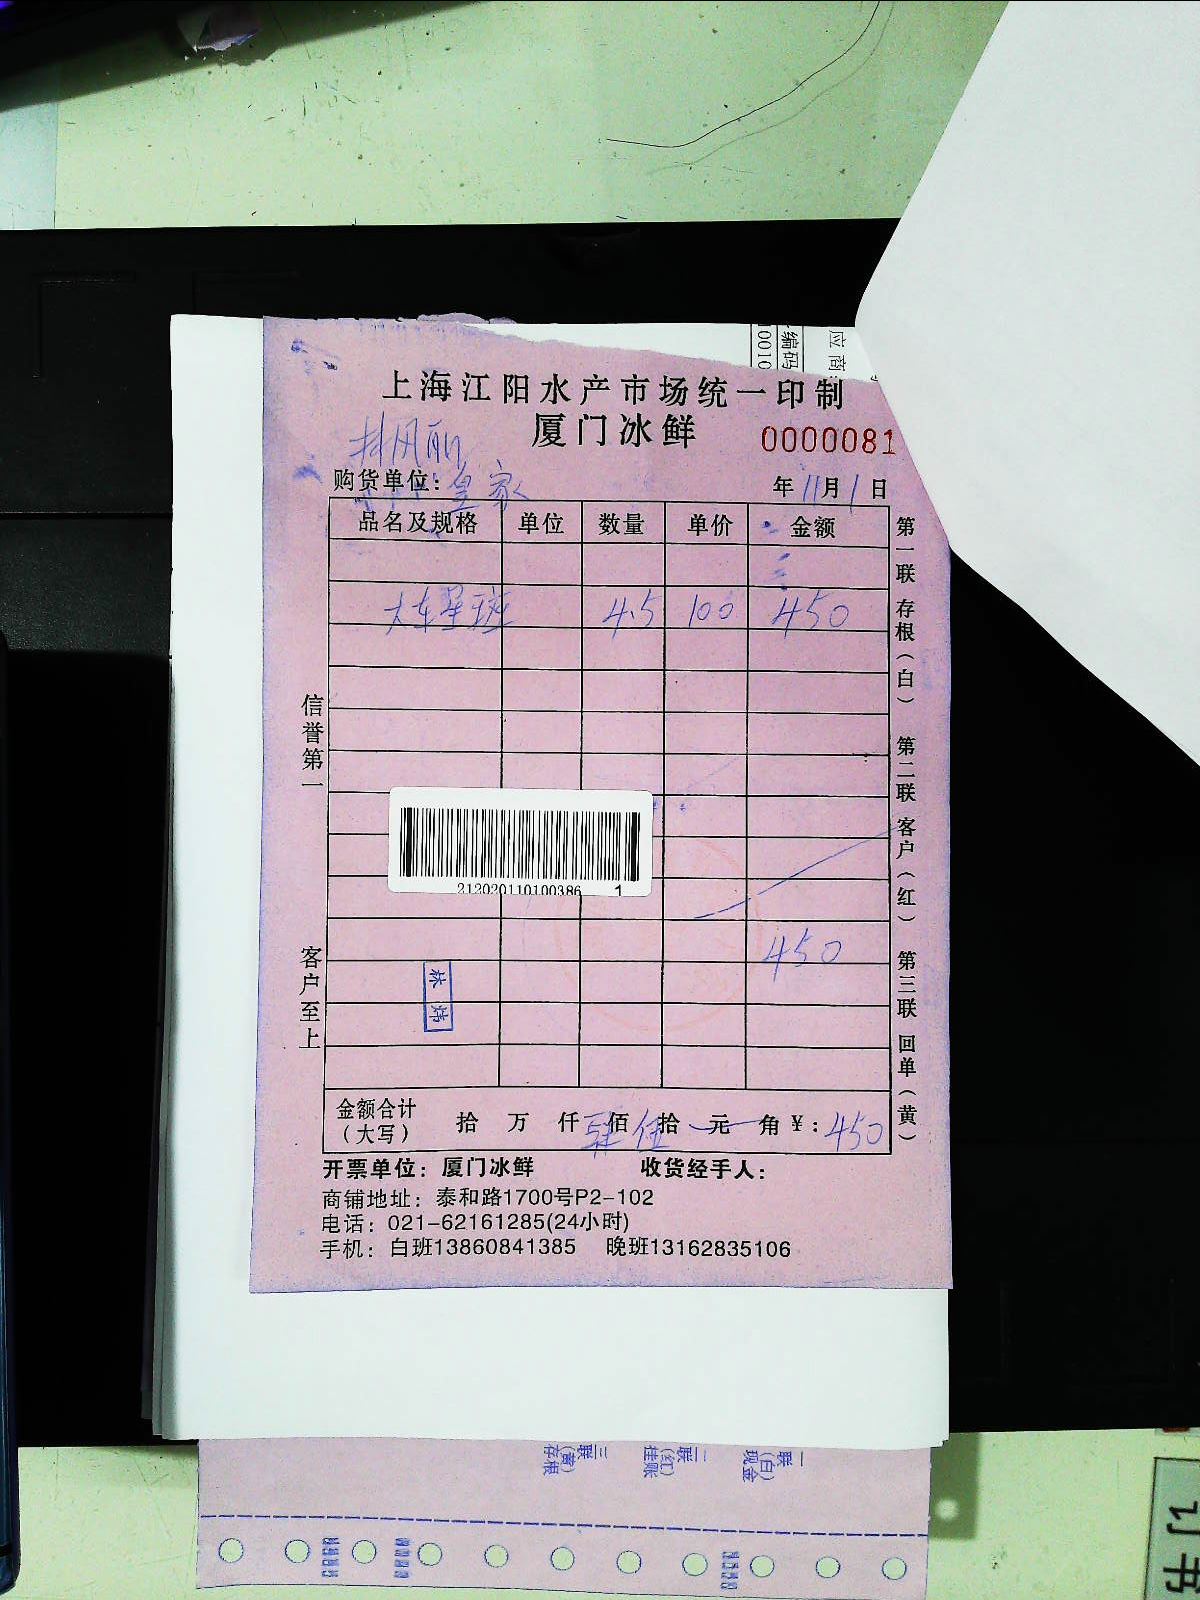 应商
编码
10010
上海江阳水产市场统一印制
厦门冰鲜
0000081
购货单位: 皇家
年 11月 1 日
品名及规格 单位 数量 单价 金额
大东星斑 4.5 100 450
450
信誉第一
客户至上
第一联 存根(白) 第二联 客户(红) 第三联 回单(黄)
212020110100386 1
林炜
金额合计(大写) 拾 万 仟 肆佰 伍拾 元 角 ¥: 450
开票单位: 厦门冰鲜 收货经手人:
商铺地址: 泰和路1700号P2-102
电话: 021-62161285(24小时)
手机: 白班13860841385 晚班13162835106
一联(白)现金
二联(红)挂账
三联(黄)存根
订书